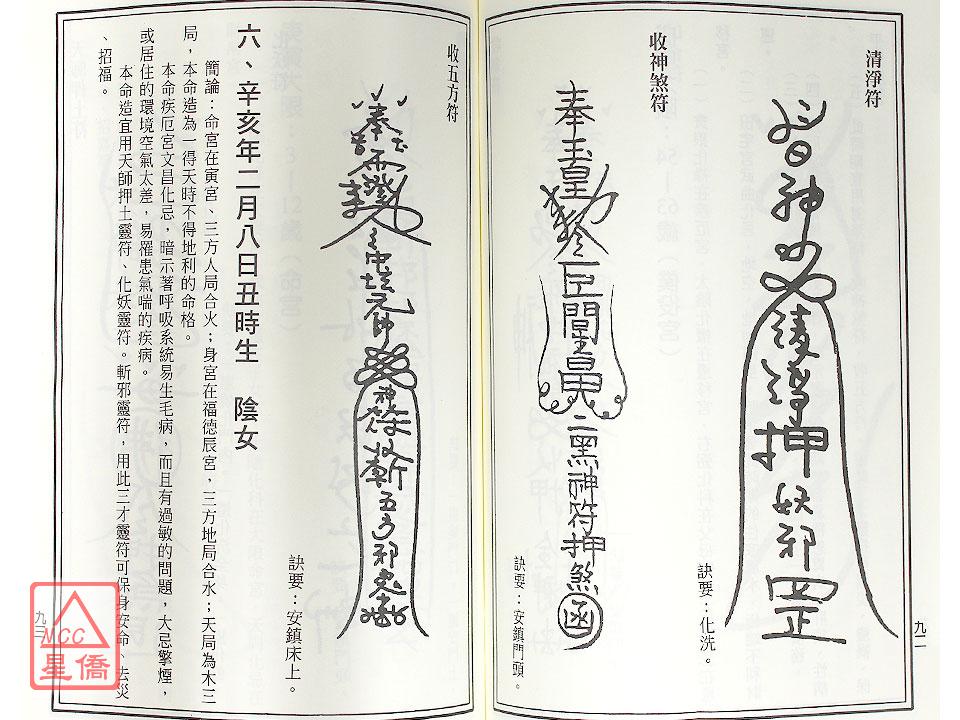 清淨符
皆神必清淨押妖邪罡
訣要：化洗。
收神煞符
奉玉皇勅
二黑神符押煞
訣要：安鎮門頭。
九二
收五方符
中壇元帥
神符收斬五方邪
訣要：安鎮床上。
六、辛亥年二月八日丑時生　陰女
簡論：命宮在寅宮、三方人局合火；身宮在福德辰宮，三方地局合水；天局為木三
局，本命造為一得天時不得地利的命格。
本命疾厄宮文昌化忌，暗示著呼吸系統易生毛病，而且有過敏的問題，大忌擎煙，
或居住的環境空氣太差，易罹患氣喘的疾病。
本命造宜用天師押土靈符、化妖靈符。斬邪靈符，用此三才靈符可保身安命、去災
、招福。
九三
MCC
星僑